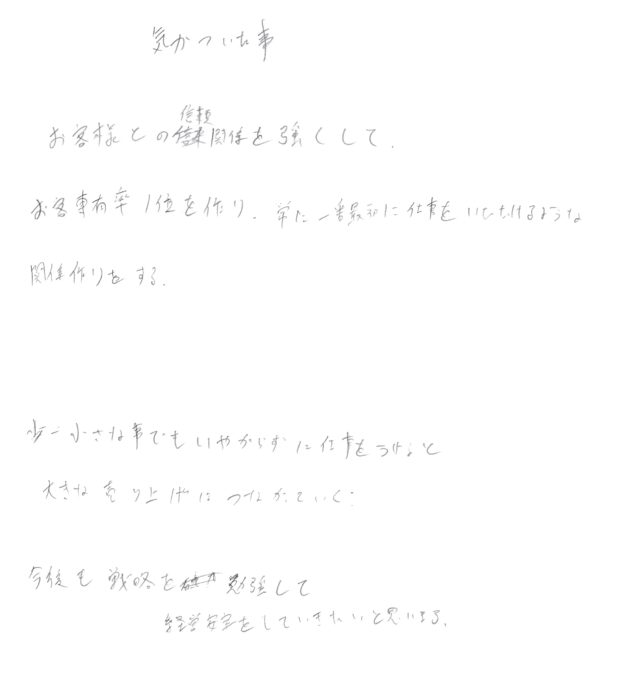 気がついた事
お客様との信頼関係を強くして、
お客専有率1位を作り、常に一番最初に仕事をいただけるような
関係作りをする。
小さな事でもいやがらずに仕事をうけると
大きな売り上げにつながっていく。
今後も戦略を勉強して
経営安定をしていきたいと思います。